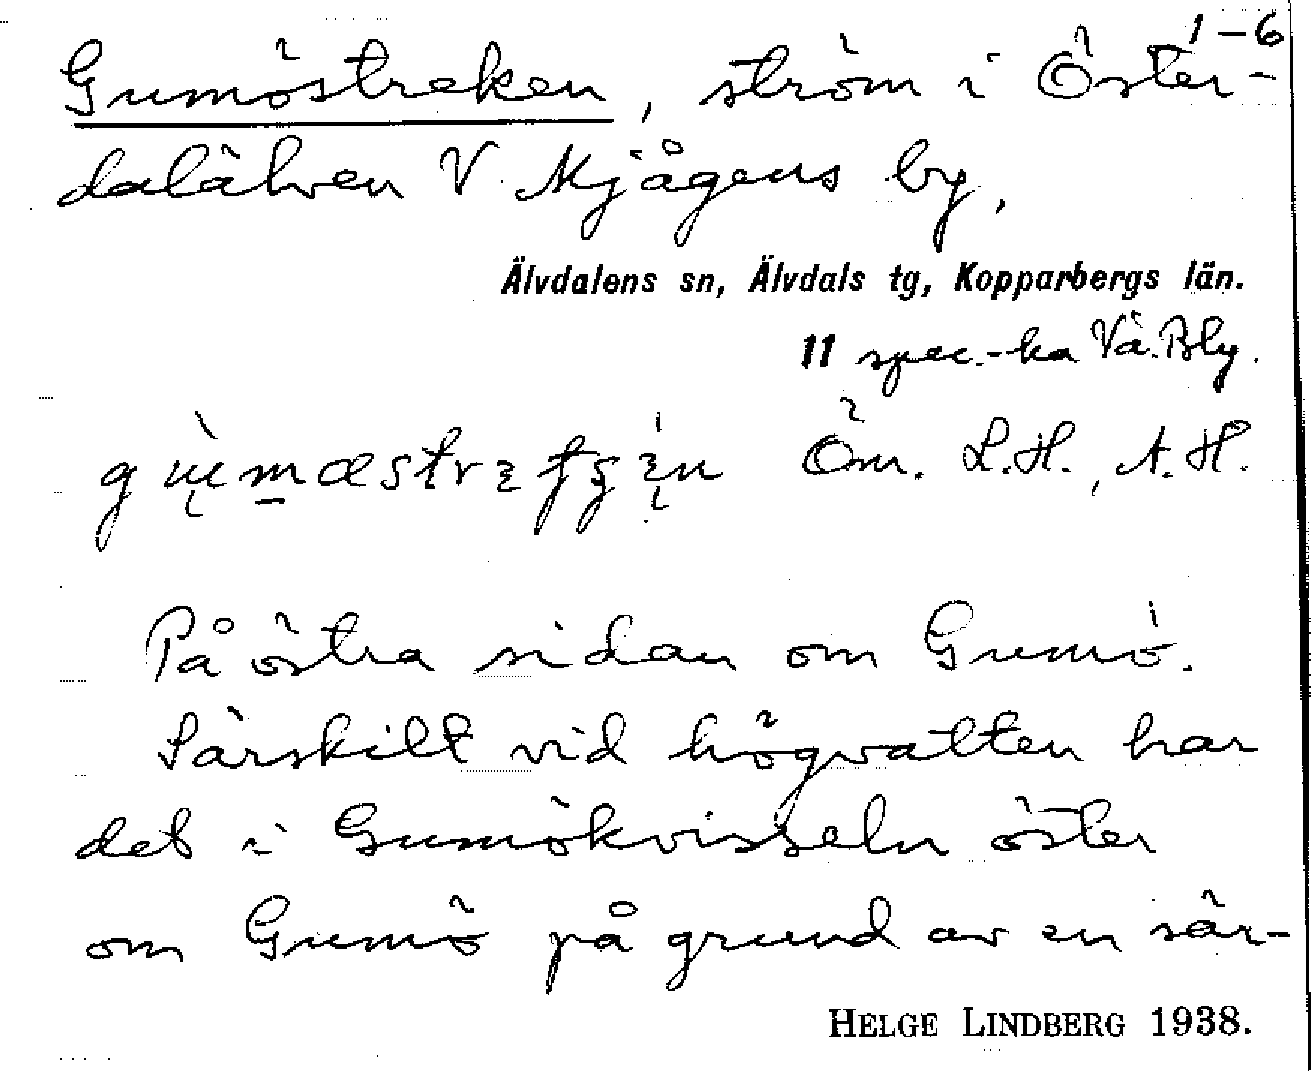 1–6
Gumöstreken, ström i Öster-
dalälven V. Mjågens by.
Älvdalens sn, Älvdals tg, Kopparbergs län.
11 spec.-ka Vä. Bly.
Öm. L.H., A.H.
På östra sidan om Gumö.
Särskilt vid högvatten har
det i Gumökvisseln öster
om Gumö på grund av en sär-
HELGE LINDBERG 1938.